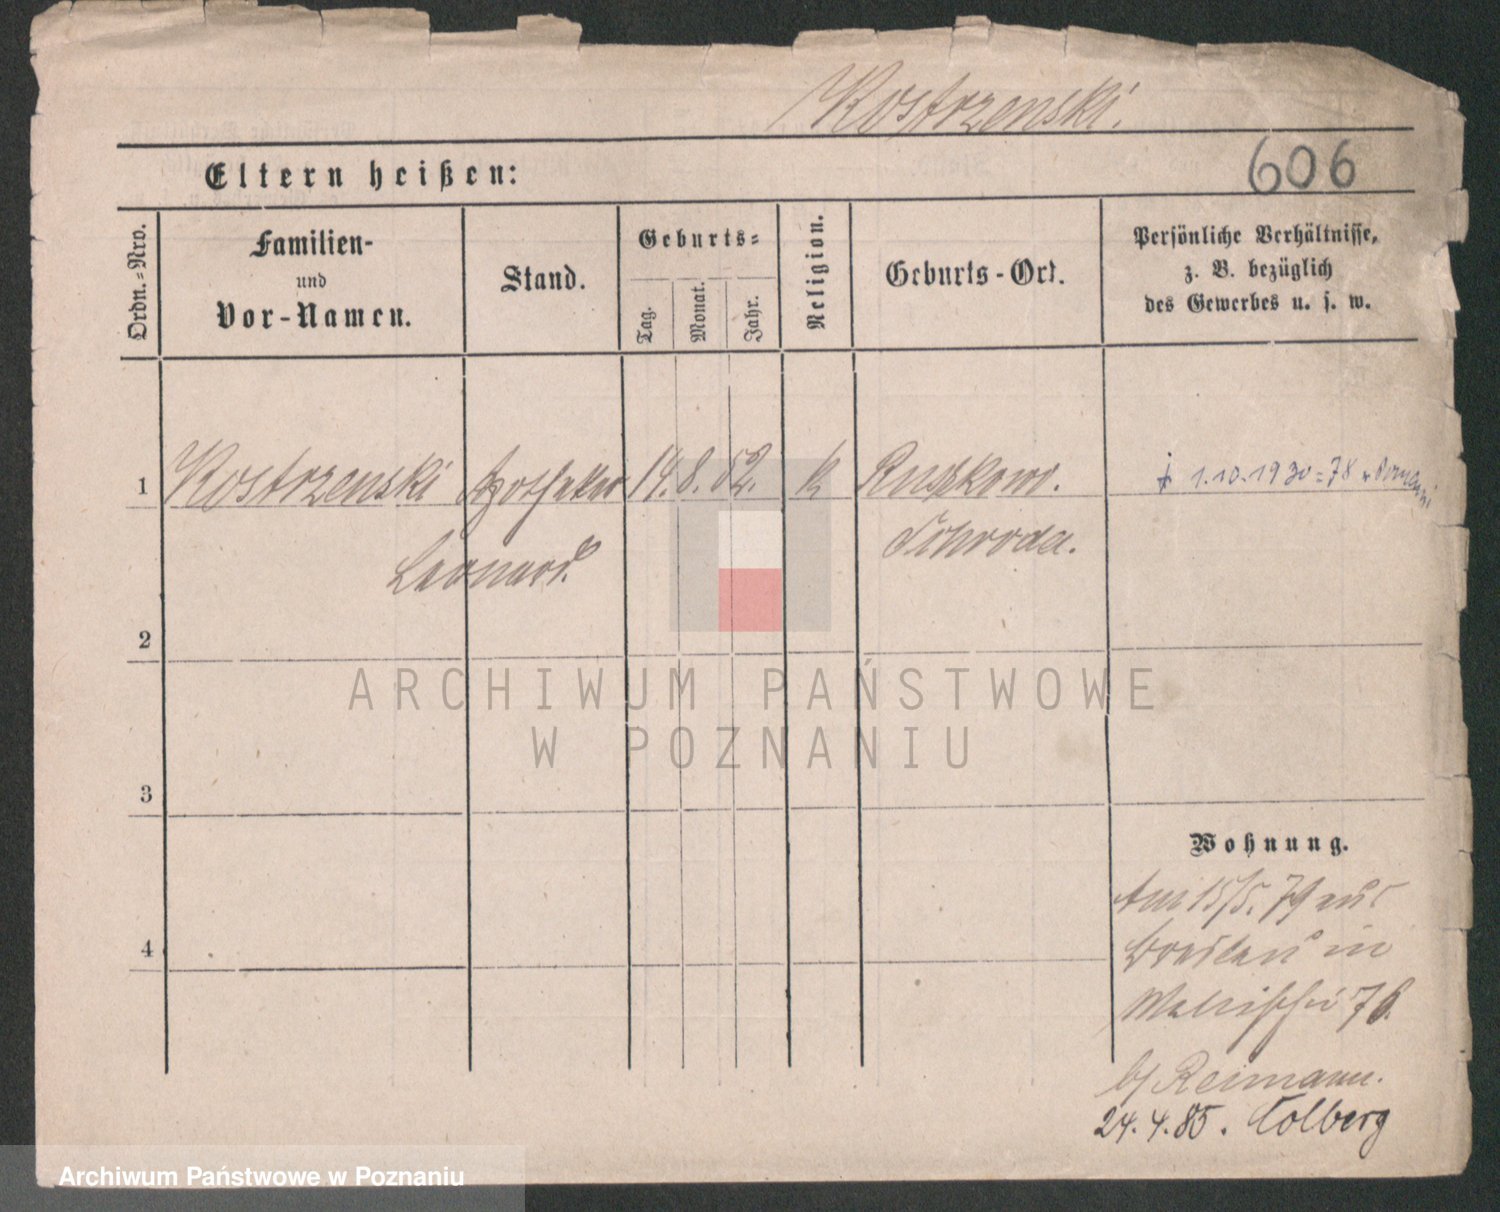 Kostrzenski.
Eltern heißen:
606
Ordn.-Nro.
Familien-
und
Vor-Namen.
Stand.
Geburts-
Tag.
Monat.
Jahr.
Religion.
Geburts-Ort.
Persönliche Verhältnisse,
z. B. bezüglich
des Gewerbes u. s. w.
1 Kostrzenski Apotheker 14. 8. 52. k Ruszkowo. 1.10.1930 = 78
Leonard. Schroda.
2
3
4
Wohnung.
Am 15/5. 79 aus
Breslau in
Wallischei 76.
b/ Reimann.
24. 4. 85. Colberg
ARCHIWUM PAŃSTWOWE
W POZNANIU
Archiwum Państwowe w Poznaniu